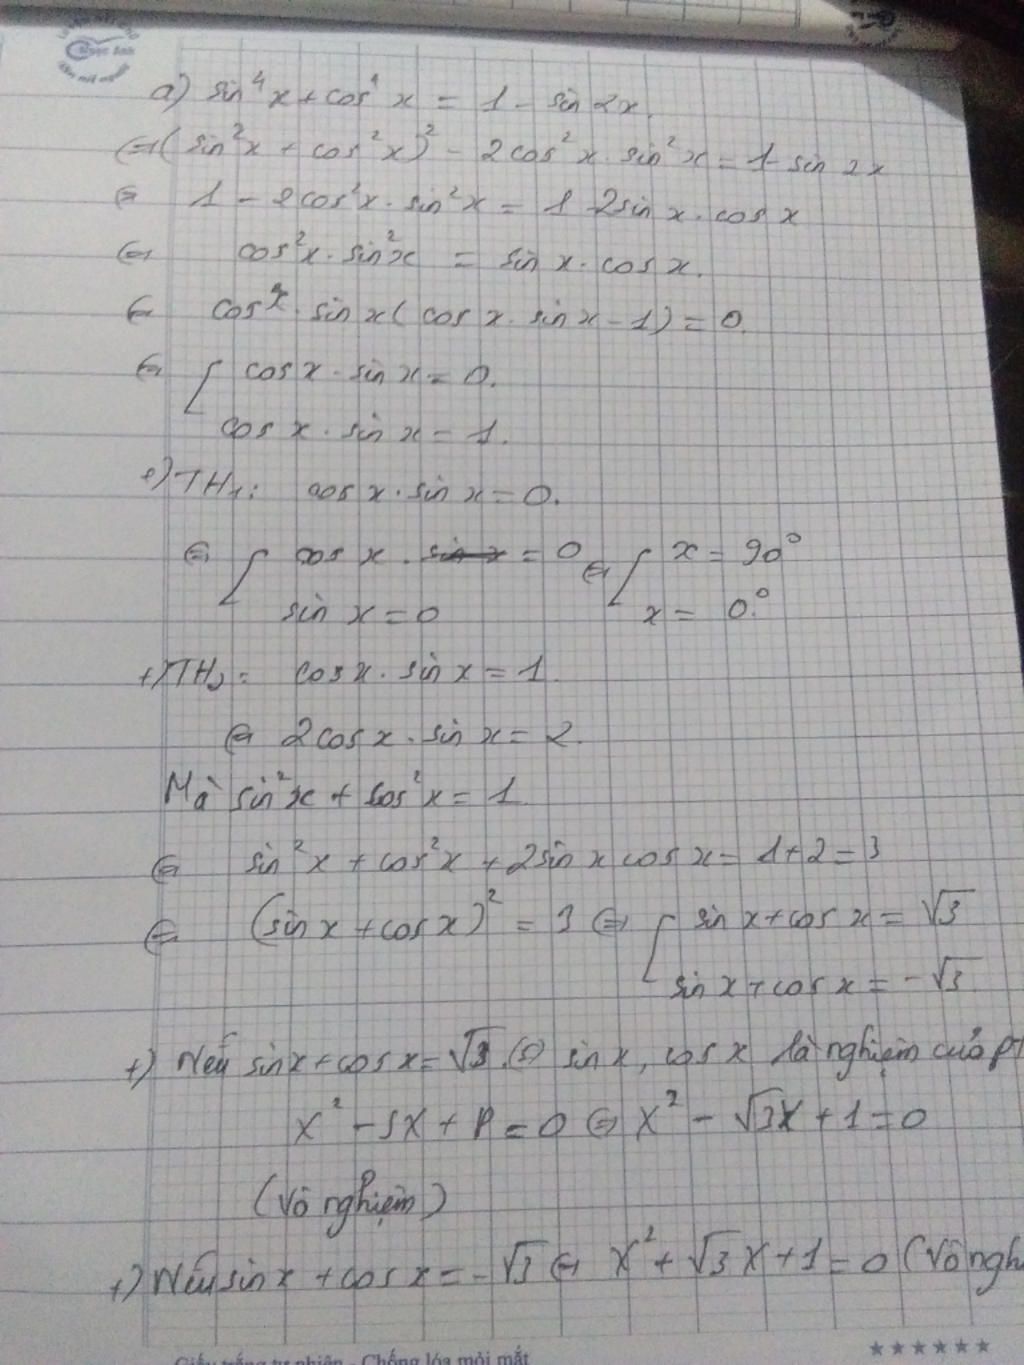 Ngọc Ánh
a) sin⁴x + cos⁴x = 1 - sin 2x.
⇔ (sin²x + cos²x)² - 2cos²x . sin²x = 1 - sin 2x
⇔ 1 - 2cos²x . sin²x = 1 - 2sin x . cos x
⇔ cos²x . sin²x = sin x . cos x.
⇔ cos x . sin x ( cos x . sin x - 1) = 0.
⇔ [ cos x . sin x = 0.
cos x . sin x = 1.
+) TH₁: cos x . sin x = 0.
⇔ [ cos x . = 0 ⇔ [ x = 90°
sin x = 0 x = 0.°
+) TH₂: cos x . sin x = 1.
⇔ 2cos x . sin x = 2.
Mà sin²x + cos²x = 1
⇔ sin²x + cos²x + 2sin x cos x = 1 + 2 = 3
⇔ (sin x + cos x)² = 3 ⇔ [ sin x + cos x = √3
sin x + cos x = -√3
+) Nếu sin x + cos x = √3. ⇔ sin x, cos x là nghiệm của PT
X² - SX + P = 0 ⇔ X² - √3X + 1 = 0
(Vô nghiệm)
+) Nếu sin x + cos x = -√3 ⇔ X² + √3X + 1 = 0 (Vô ngh
Giấy trắng tự nhiên - Chống lóa mỏi mắt ★★★★★★